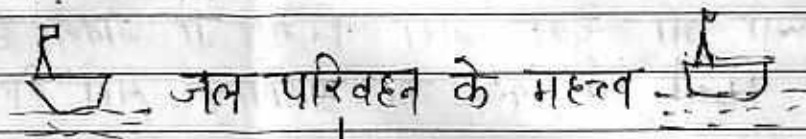 जल परिवहन के महत्त्व